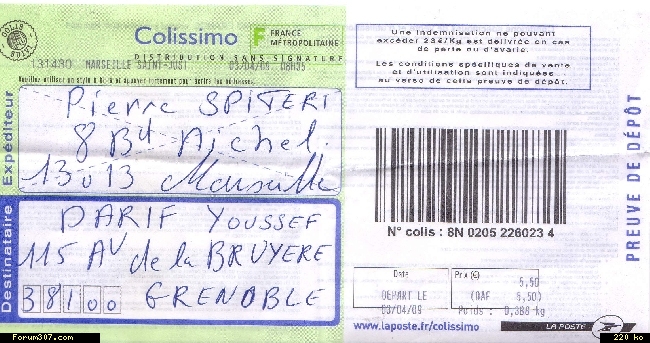 COLIS
Colissimo
F FRANCE MÉTROPOLITAINE
DISTRIBUTION SANS SIGNATURE
131430 MARSEILLE SAINT-JUST 03/04/09 08H35
Veuillez utiliser un stylo à bille et appuyer fortement pour écrire les adresses.
Expéditeur
Pierre SPITERI
8 Bd Michel.
13013 Marseille
Destinataire
DARIF YOUSSEF
115 AV de la BRUYERE
38100 GRENOBLE
Une indemnisation ne pouvant
excéder 23€/Kg est délivrée en cas
de perte ou d'avarie.
Les conditions spécifiques de vente
et d'utilisation sont indiquées
au verso de cette preuve de dépôt.
N° colis : 8N 0205 226023 4
PREUVE DE DÉPÔT
Date
DÉPART LE
03/04/09
Prix (€)
5,50
(OAF 5,50)
Poids : 0,388 kg
www.laposte.fr/colissimo
LA POSTE
Forum307.com
220 ko